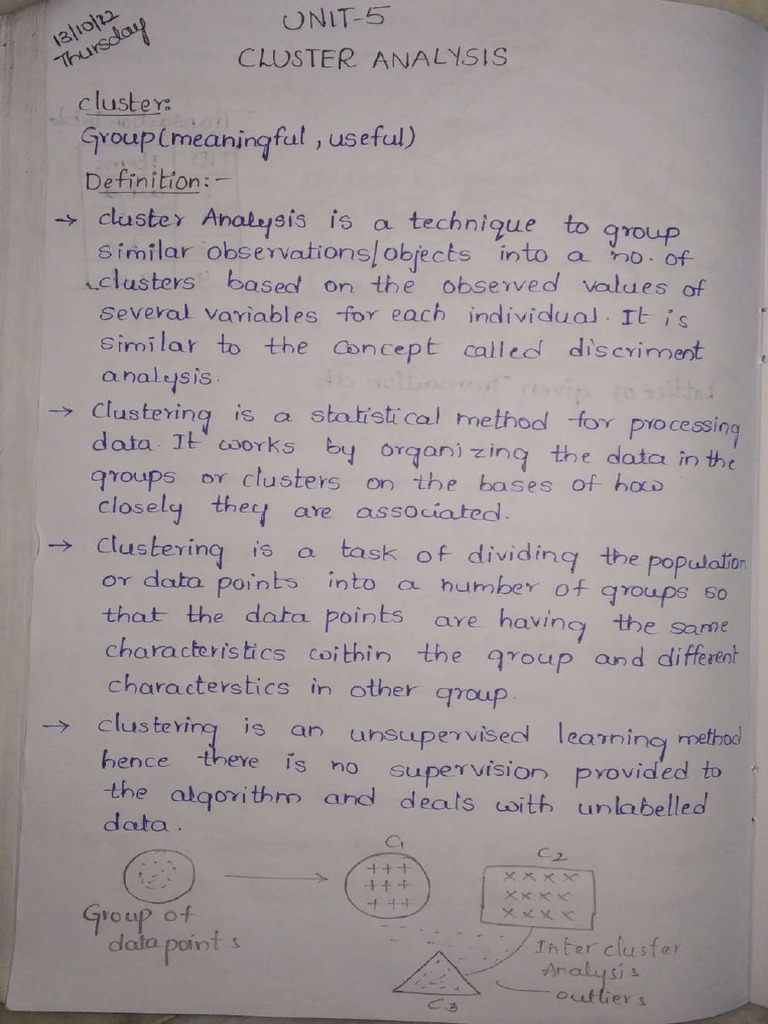 13/10/22
Thursday
UNIT-5
CLUSTER ANALYSIS
cluster:
Group(meaningful, useful)
Definition:-
→ cluster Analysis is a technique to group
similar observations/objects into a no. of
clusters based on the observed values of
several variables for each individual. It is
similar to the concept called discriment
analysis.
→ Clustering is a statistical method for processing
data. It works by organizing the data in the
groups or clusters on the bases of how
closely they are associated.
→ Clustering is a task of dividing the population
or data points into a number of groups so
that the data points are having the same
characteristics within the group and different
characterstics in other group.
→ clustering is an unsupervised learning method
hence there is no supervision provided to
the algorithm and deals with unlabelled
data.
C1
C2
+++
+++
+++
x x x x
x x x x
x x x x
Group of
datapoints
Inter cluster
Analysis
outliers
C3